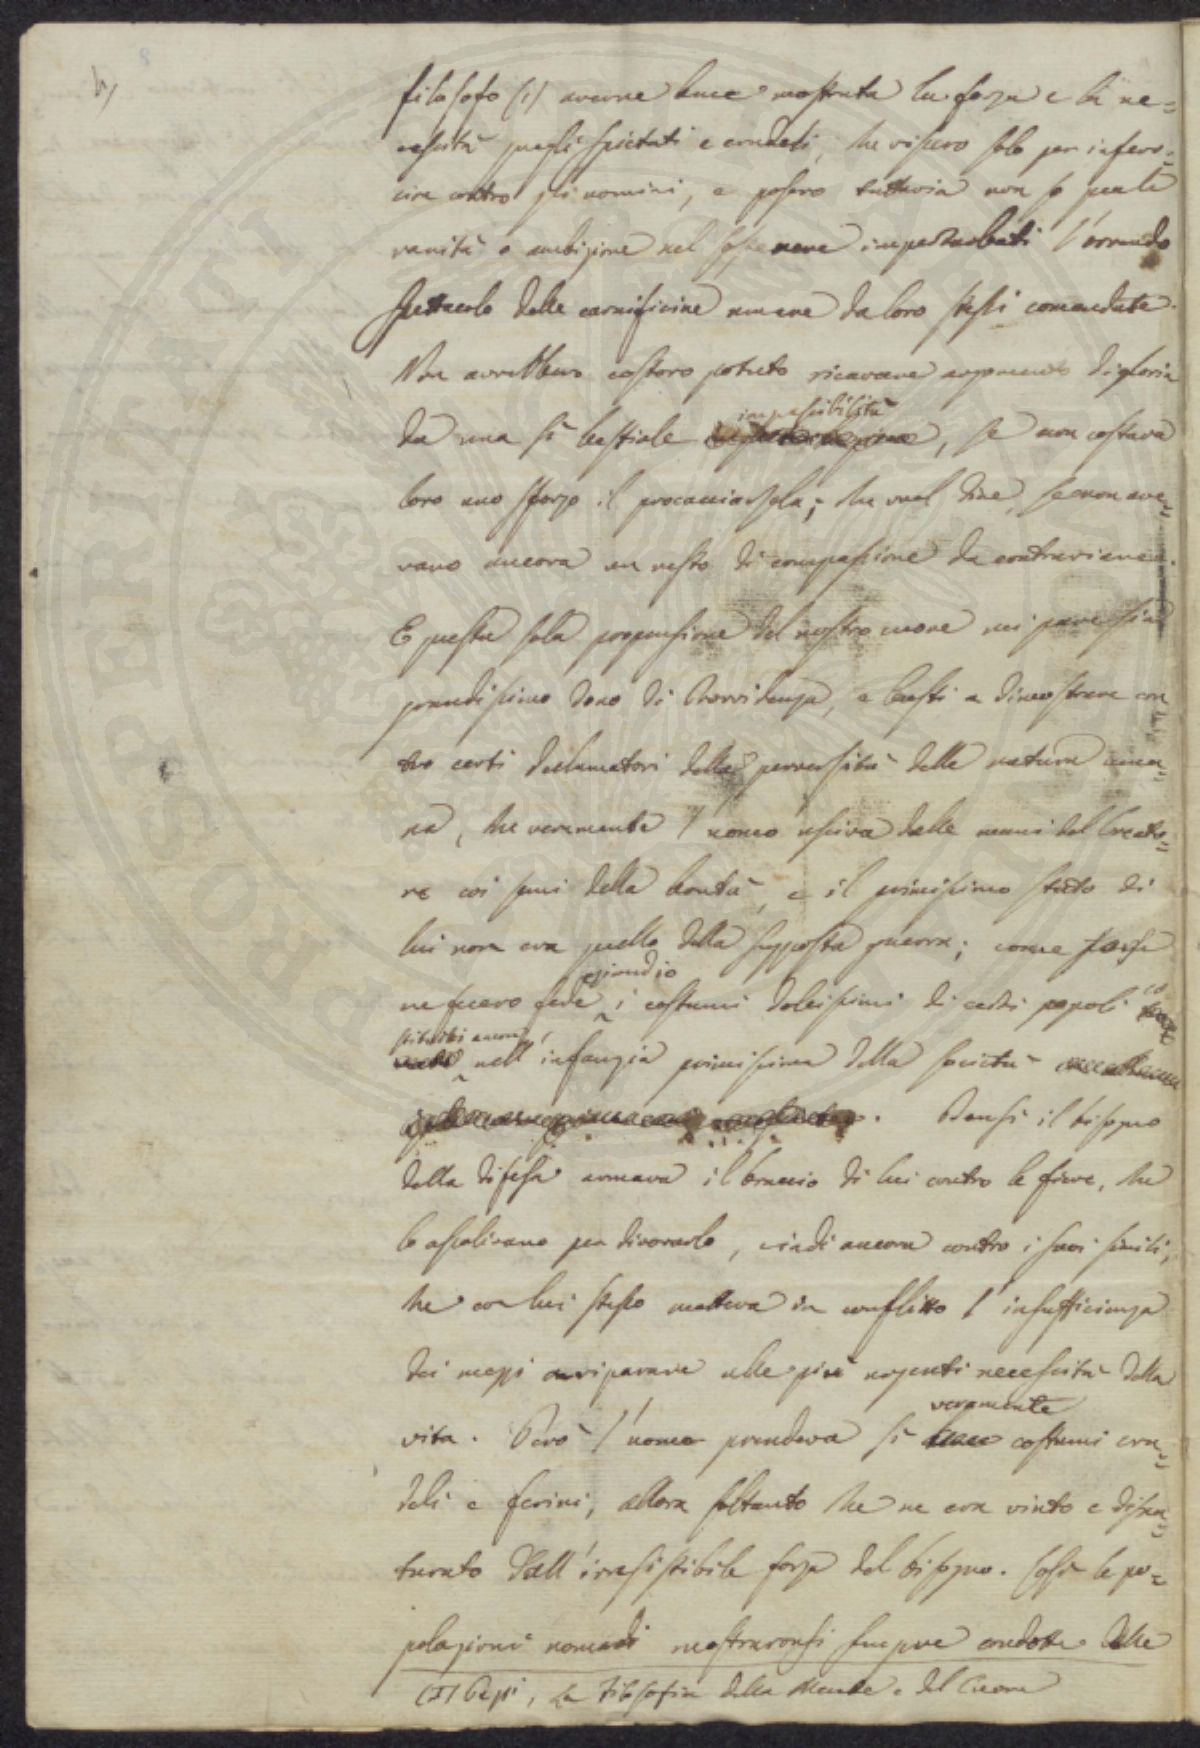 4)
filosofo (1) averne ance mostrata la forza e la ne=
cessità quegli spietati e crudeli, che vissero solo per infero=
cire contro gli uomini, e posero tuttavia non so quale
vanità o ambizione nel sostenere imperturbati l'orrendo
spettacolo delle carnificine umane da loro stessi comandate.
Non avrebbero costoro potuto ricavare argomento di gloria
da una sì bestiale impassibilità, se non costava
loro uno sforzo il procacciarsela; che vuol dire, se non ave=
vano ancora un resto di compassione da contrariare.
E questa sola propensione del nostro cuore mi pare sia
grandissimo dono di Provvidenza, e basti a dimostrare con
tro certi declamatori della perversità della natura uma=
na, che veramente l'uomo usciva dalle mani del Creato=
re coi semi della bontà, e il primissimo stato di
lui non era quello della supposta guerra; come forse
ne fecero fede eziandio i costumi dolcissimi di certi popoli co
stituiti ancora nell'infanzia primissima della società
. Bensì il bisogno
della difesa armava il braccio di lui contro le fiere, che
lo assalivano per divorarlo, indi ancora contro i suoi simili,
che con lui stesso metteva in conflitto l'insufficienza
dei mezzi a riparare alle più urgenti necessità della
vita. Però l'uomo prendeva sì veramente costumi cru=
deli e ferini, allora soltanto che ne era vinto e disna=
turato dall'irresistibile forza del bisogno. Così le po=
polazioni nomadi mostraronsi sempre condotte dalle
(1) Pezzi, La Filosofia della Mente e del Cuore